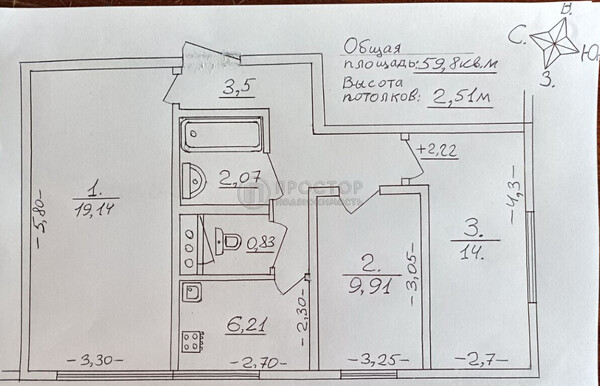 Общая
площадь: 59,8 кв.м
Высота
потолков: 2,51м
В.
С.
Ю.
З.
3,5
+2,22
1.
19,14
-5,80-
2,07
ПРОСТОР
НЕДВИЖИМОСТЬ
0,83
3.
14.
-4,3-
2.
9,91
-3,05-
6,21
-2,30-
-3,30-
-2,70-
-3,25-
-2,7-